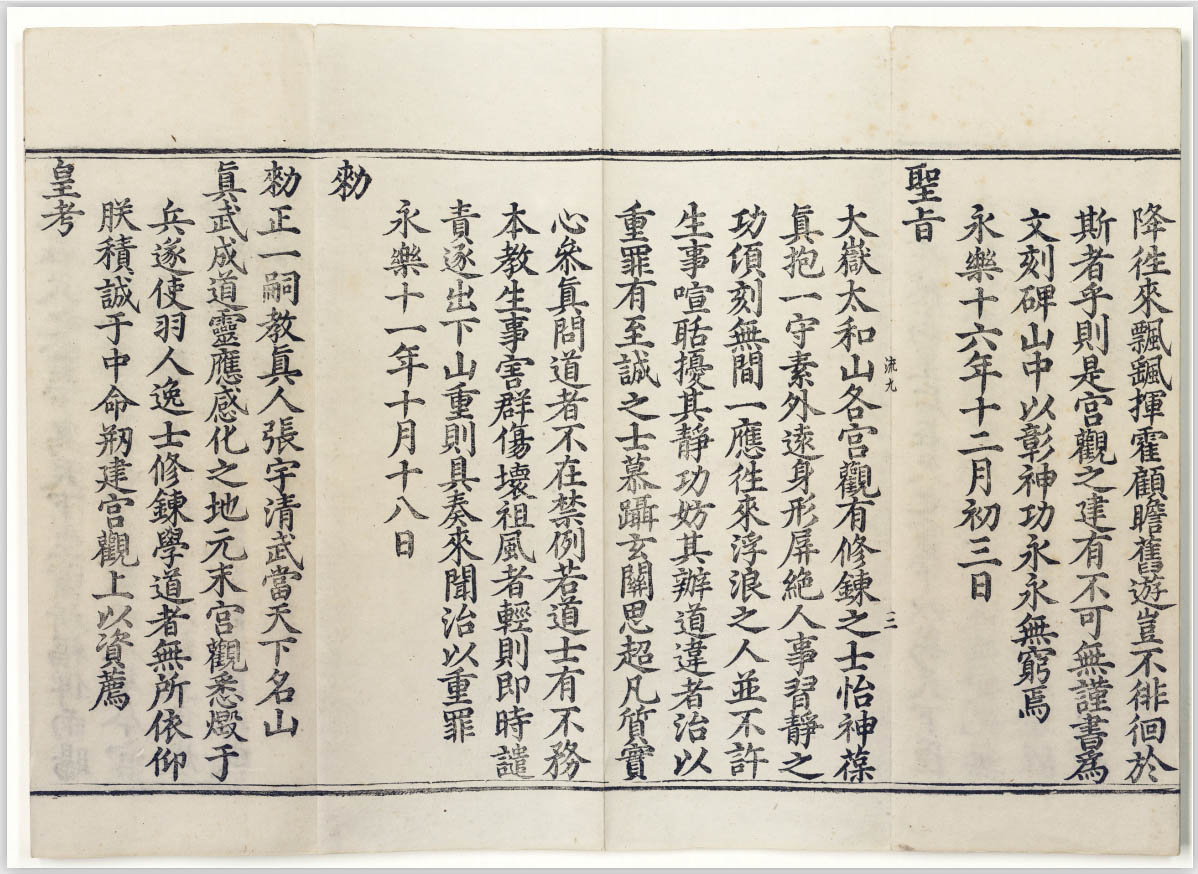 降徃來飄飄揮霍顧瞻舊遊豈不徘徊於
斯者乎則是宮觀之建有不可無謹書爲
文刻碑山中以彰神功永永無窮焉
永樂十六年十二月初三日
聖旨
流九 三
大嶽太和山各宮觀有修鍊之士怡神葆
眞抱一守素外遠身形屏絶人事習靜之
功傾刻無間一應徃來浮浪之人並不許
生事喧聒擾其靜功妨其辦道違者治以
重罪有至誠之士慕躡玄關思超凡質實
心叅眞問道者不在禁例若道士有不務
本教生事害群傷壞祖風者輕則即時譴
責逐出下山重則具奏來聞治以重罪
永樂十一年十月十八日
勑
勑正一嗣教眞人張宇清武當天下名山
眞武成道靈應感化之地元末宮觀悉燬于
兵遂使羽人逸士修鍊學道者無所依仰
朕積誠于中命刱建宮觀上以資薦
皇考